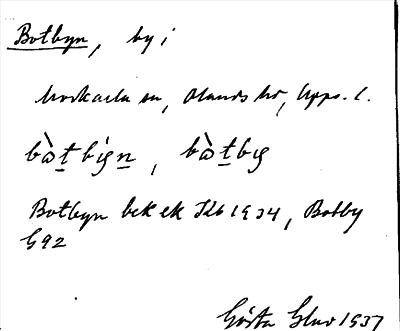 Botbyn, by i
Morkarla sn, Olands hd, Upps. l.
bȯ̀t̠byn̠, bȯ̀t̠by
Botbyn bek ek Kb 1934, Botby
G92
Gösta Ehn 1937